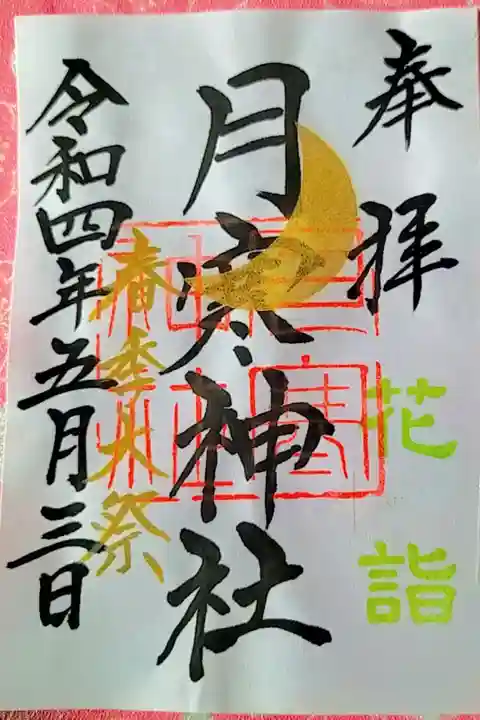 奉拝
花詣
月寒神社
春季大祭
令和四年五月三日